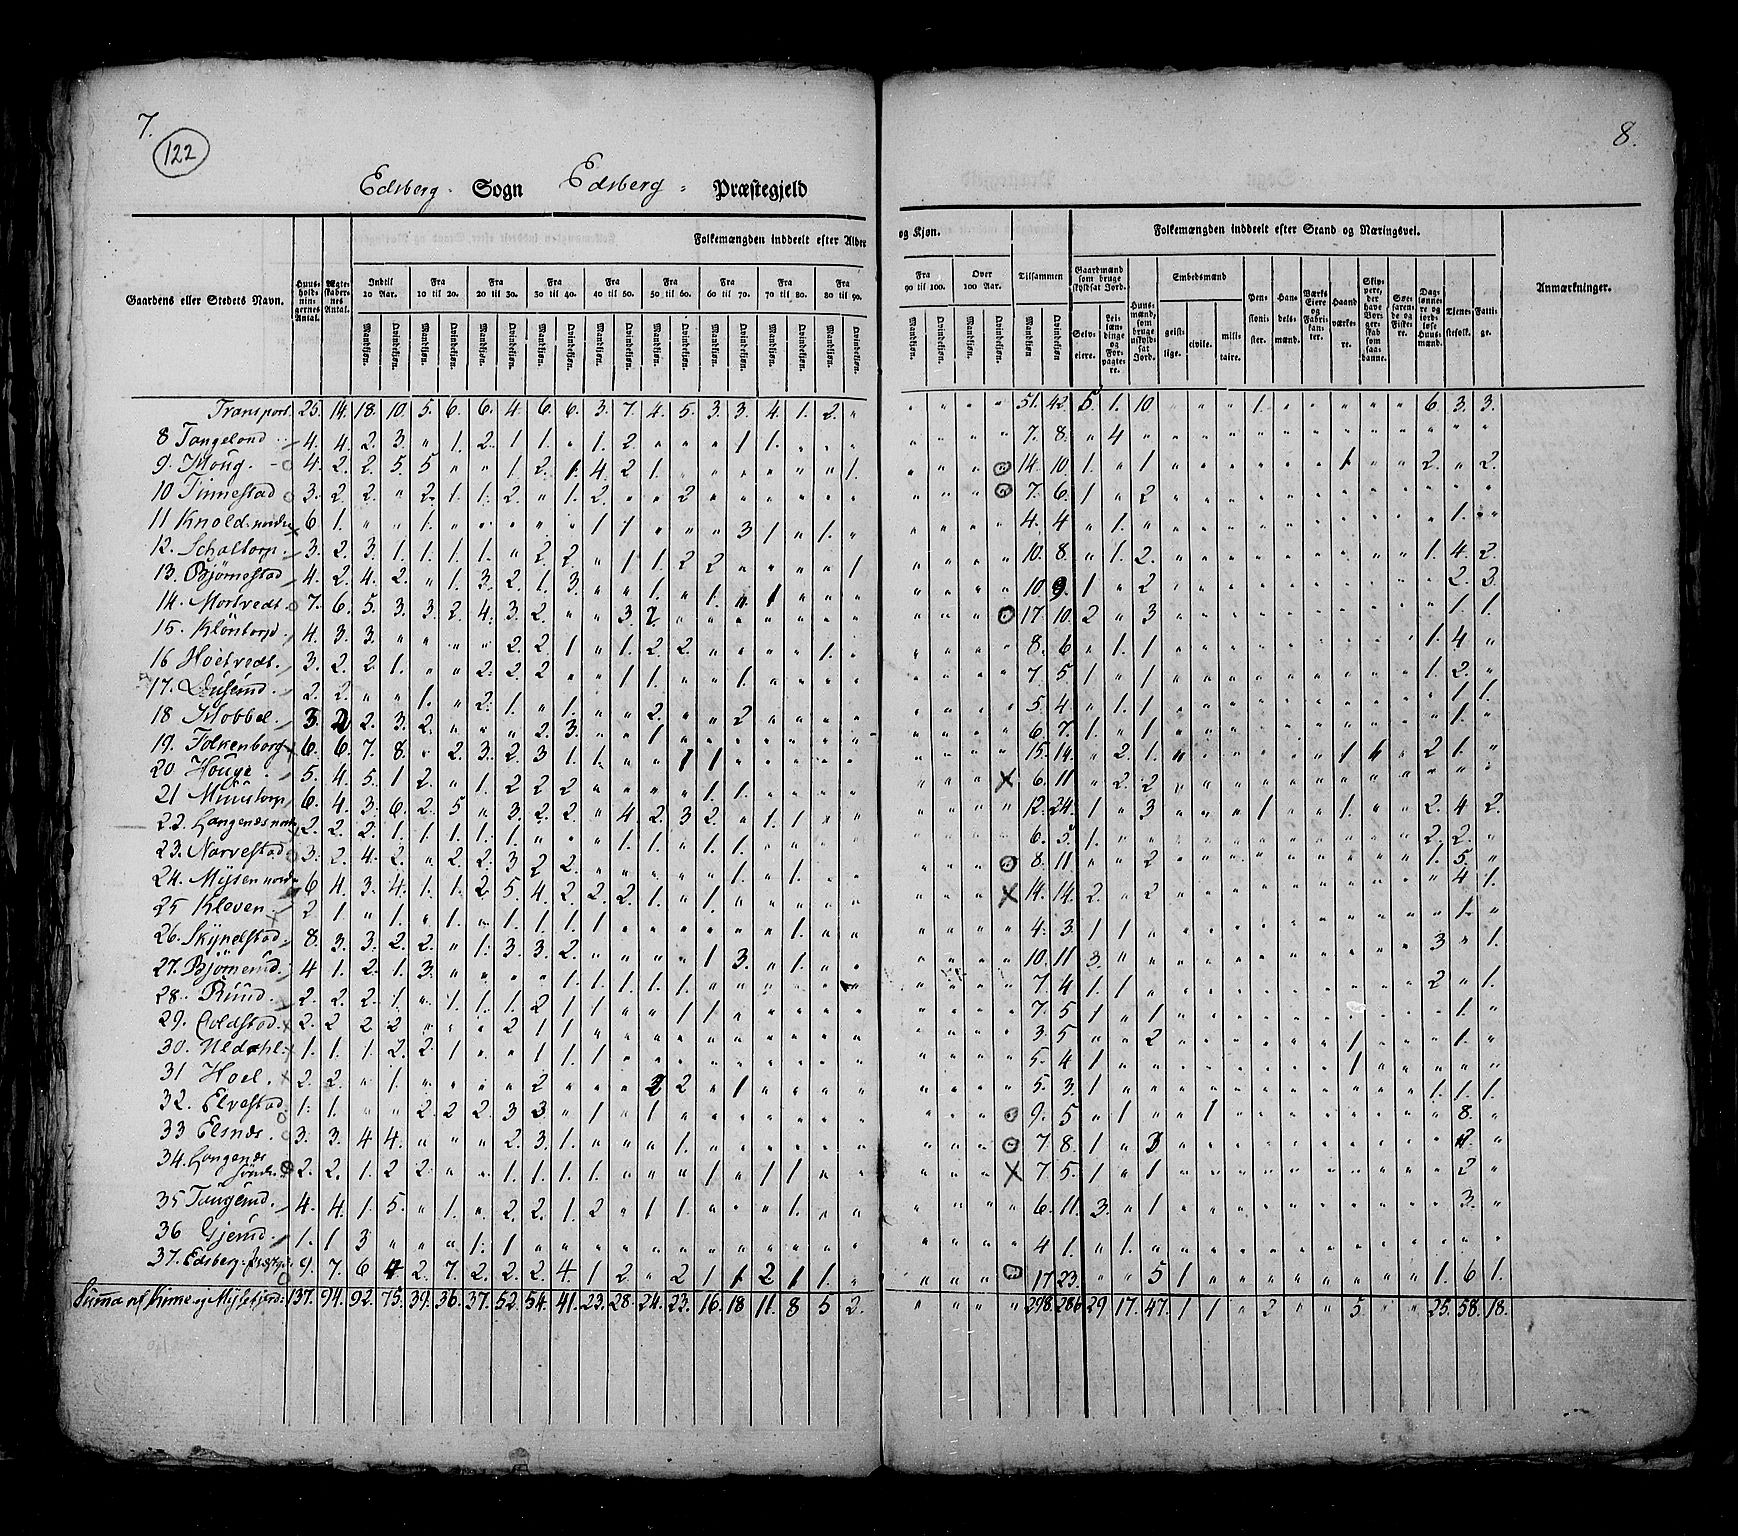 7.
122
8.
Edsberg. Sogn Edsberg Præstegjeld
Gaardens eller Stedets Navn.
Huusholdningernes Antal.
Ægteskabernes Antal.
Folkemængden inddeelt efter Alder og Kjøn.
Indtil 10 Aar.
Fra 10 til 20.
Fra 20 til 30.
Fra 30 til 40.
Fra 40 til 50.
Fra 50 til 60.
Fra 60 til 70.
Fra 70 til 80.
Fra 80 til 90.
Fra 90 til 100.
Over 100 Aar.
Tilsammen
Mandkjøn. Qvindekjøn.
Folkemængden inddeelt efter Stand og Næringsvei.
Gaardmænd som bruge skyldsat Jord.
Selveiere.
Leilændinge og Forpagtere.
Huusmænd, som bruge uskyldsat Jord.
Embedsmænd
geistlige. civile. militaire.
Pensionister.
Handelsmænd.
Værks Eiere og Fabrikanter.
Haandværkere.
Skippere, der have Borgerskab som saadanne.
Søefarende og Fiskere.
Daglønnere og jordløse Huusmænd.
Tienestefolk.
Fattige.
Anmærkninger.
Transport. 25. 14. 18. 10. 5. 6. 6. 4. 6. 6. 3. 7. 4. 5. 3. 3. 4. 1. 2. " 51. 42. 5. 1. 10 1. 6. 3. 3.
8 Tangelond 4. 4. 2. 3. " 1. 2. 1 1. " 1. 2. 1 1. 7. 8. " 4
9. Moug. 4. 2. 2. 5. 5 " " 1 2. 1. 4 2 1. 1. 14. 10. 1. " 1 1. 2. " 2.
10 Finnestad 3. 2. 2. " 2. 1. 1. 2. " 1. 2. " " 2 7. 6. 1 " 2
11 Knold nordre 6 1. " " 1. 1 1 3 1 " 1. 4. 4 " 1. " 1.
12. Schaltorp. 3. 2. 3. 1. 1. 1. 1. " 2 2 " 1 1. 2 2 1 10. 8. " 1. 2. 1. 4. 2.
13. Bjørnestad 4. 2. 4. 2. " 1. 3. 2. 1. 3. " " 1. " 1. " 1 10. 9. 1 " 2 2. 3.
14. Mortvedt. 7. 6. 5. 3. 3. 2 4. 3. 2. " " 3. 2 17 10. 2 " 3 1. 1.
15. Klöntorp. 4. 3. 3. " " " " 2. 2. 1 " 1. 2. 2. 1. 8. 6 " 1. 1. 1. 4 "
16 Hoetvedt. 3. 2. 2. 1. " " 2. 2. 2 " " 1 1. " 1. 7. 5 1 " 1 1. 2. "
17. 2. 2. " " 1. " 2. 1. " 1. " " 2. " " 2 5. 4 " 1. 1 1. 1.
18 3. 2 2. 3. 2. " " " 2. 3. " " 1 6. 7. 1. " 1 1.
19. Folkenborg 6. 6. 7. 8. " 2. 3. 2. 3 1. 1. " " 1 1 15. 14. " 2. 1. 1 1. 2 1. "
20 Houge 5. 4. 5. 1 2. " 1. 2 2 2 1. 1. 6. 11 " 2. 2
21 6. 4. 3. 6. 2. 5 " 3. 2. 2. " 4 2. 3 2. " 1. 1 12. 24. 1 " 3 1 1. 2. 4 2.
22. Langenæs nordre 2. 2. 2. 1. 1 1. 1. 1. " " " 1. 1. " 1. 1. 6. 5. 1. 2. 2.
23. Narvestad 3. 2. 4. 2. " 2. 2. 3 2 2. 1. " 1. 8. 11 " " 2 1. 5. "
24. Mysen nordre 6 4. 3. 4. 1. 1. 2 5. 4 2 2. 2. 1. " 1. 14. 14. 2. " 2 4 1.
25 Kleven. 2 1. " 1. " 1. " 1. 1. 1. 1. 1. 4. 3. 1 1. 1.
26. Skyndstad 8. 3. 3. 2. 2. " 1. 3. 3. 2. 1 3. " 1. 10. 11 3. 3 " 1.
27. Bjørnerud. 4 1. 2. 1. 3. 1. 1. 1. 1. 1. 7. 4 1. 1 2 " 1.
28. Ruud. 2. 2. 2. 1. " 1. 1. 1. 2 1 1. " " 1 1. 7. 5 1 " 1 1.
29. 2. 2 2 2 " " " 2 1 1 3. 5 " " 2 1 1. "
30. 1. 1. 1. 2. 2. 1 " " 1. 1. 1. 5. 4 1 1
31 Hoel. 2. 2. " 1. 2 2 2. " 1 5 3. 1 1. 1. 1.
32. Elvestad 1. 1. " " 2. 2 2. 3 3 " 1 " 1 9. 5 " 1 " " 1 8. "
33 Elsnæs. 3. 3. 4 4. " " " 2. 3. 1. 1. 7. 8. 1 " 3 2. "
34. Langenæs søndre 2. 2. 1. 2 2. " " 1. 1. 1. 1. 1 " 1 1 7 5. 1 " 1 2 "
35 4. 4. 1. 5. " 1. " 2. 2. 1. 2 " 1 1. 1. 6. 11. 3. " 1 3. "
36 Gjerud. 1. 1 3 1. 1 4 1. " 1.
37. Edsberg 9. 7. 6 4 2. 7. 2. 2. 2. 4. 1 2. " 2 1 1. 2 1 1. 17 23. " " 5 1 1. 6 1.
Summa af Kirke og Mysefjerd. 137. 94. 92. 75. 39. 36. 37. 52. 54. 41. 23. 28. 24. 23. 16. 18 11. 8 5 2. 298. 286 29 17. 47. 1 1. " 2 " " 5. " " 25. 58. 18.